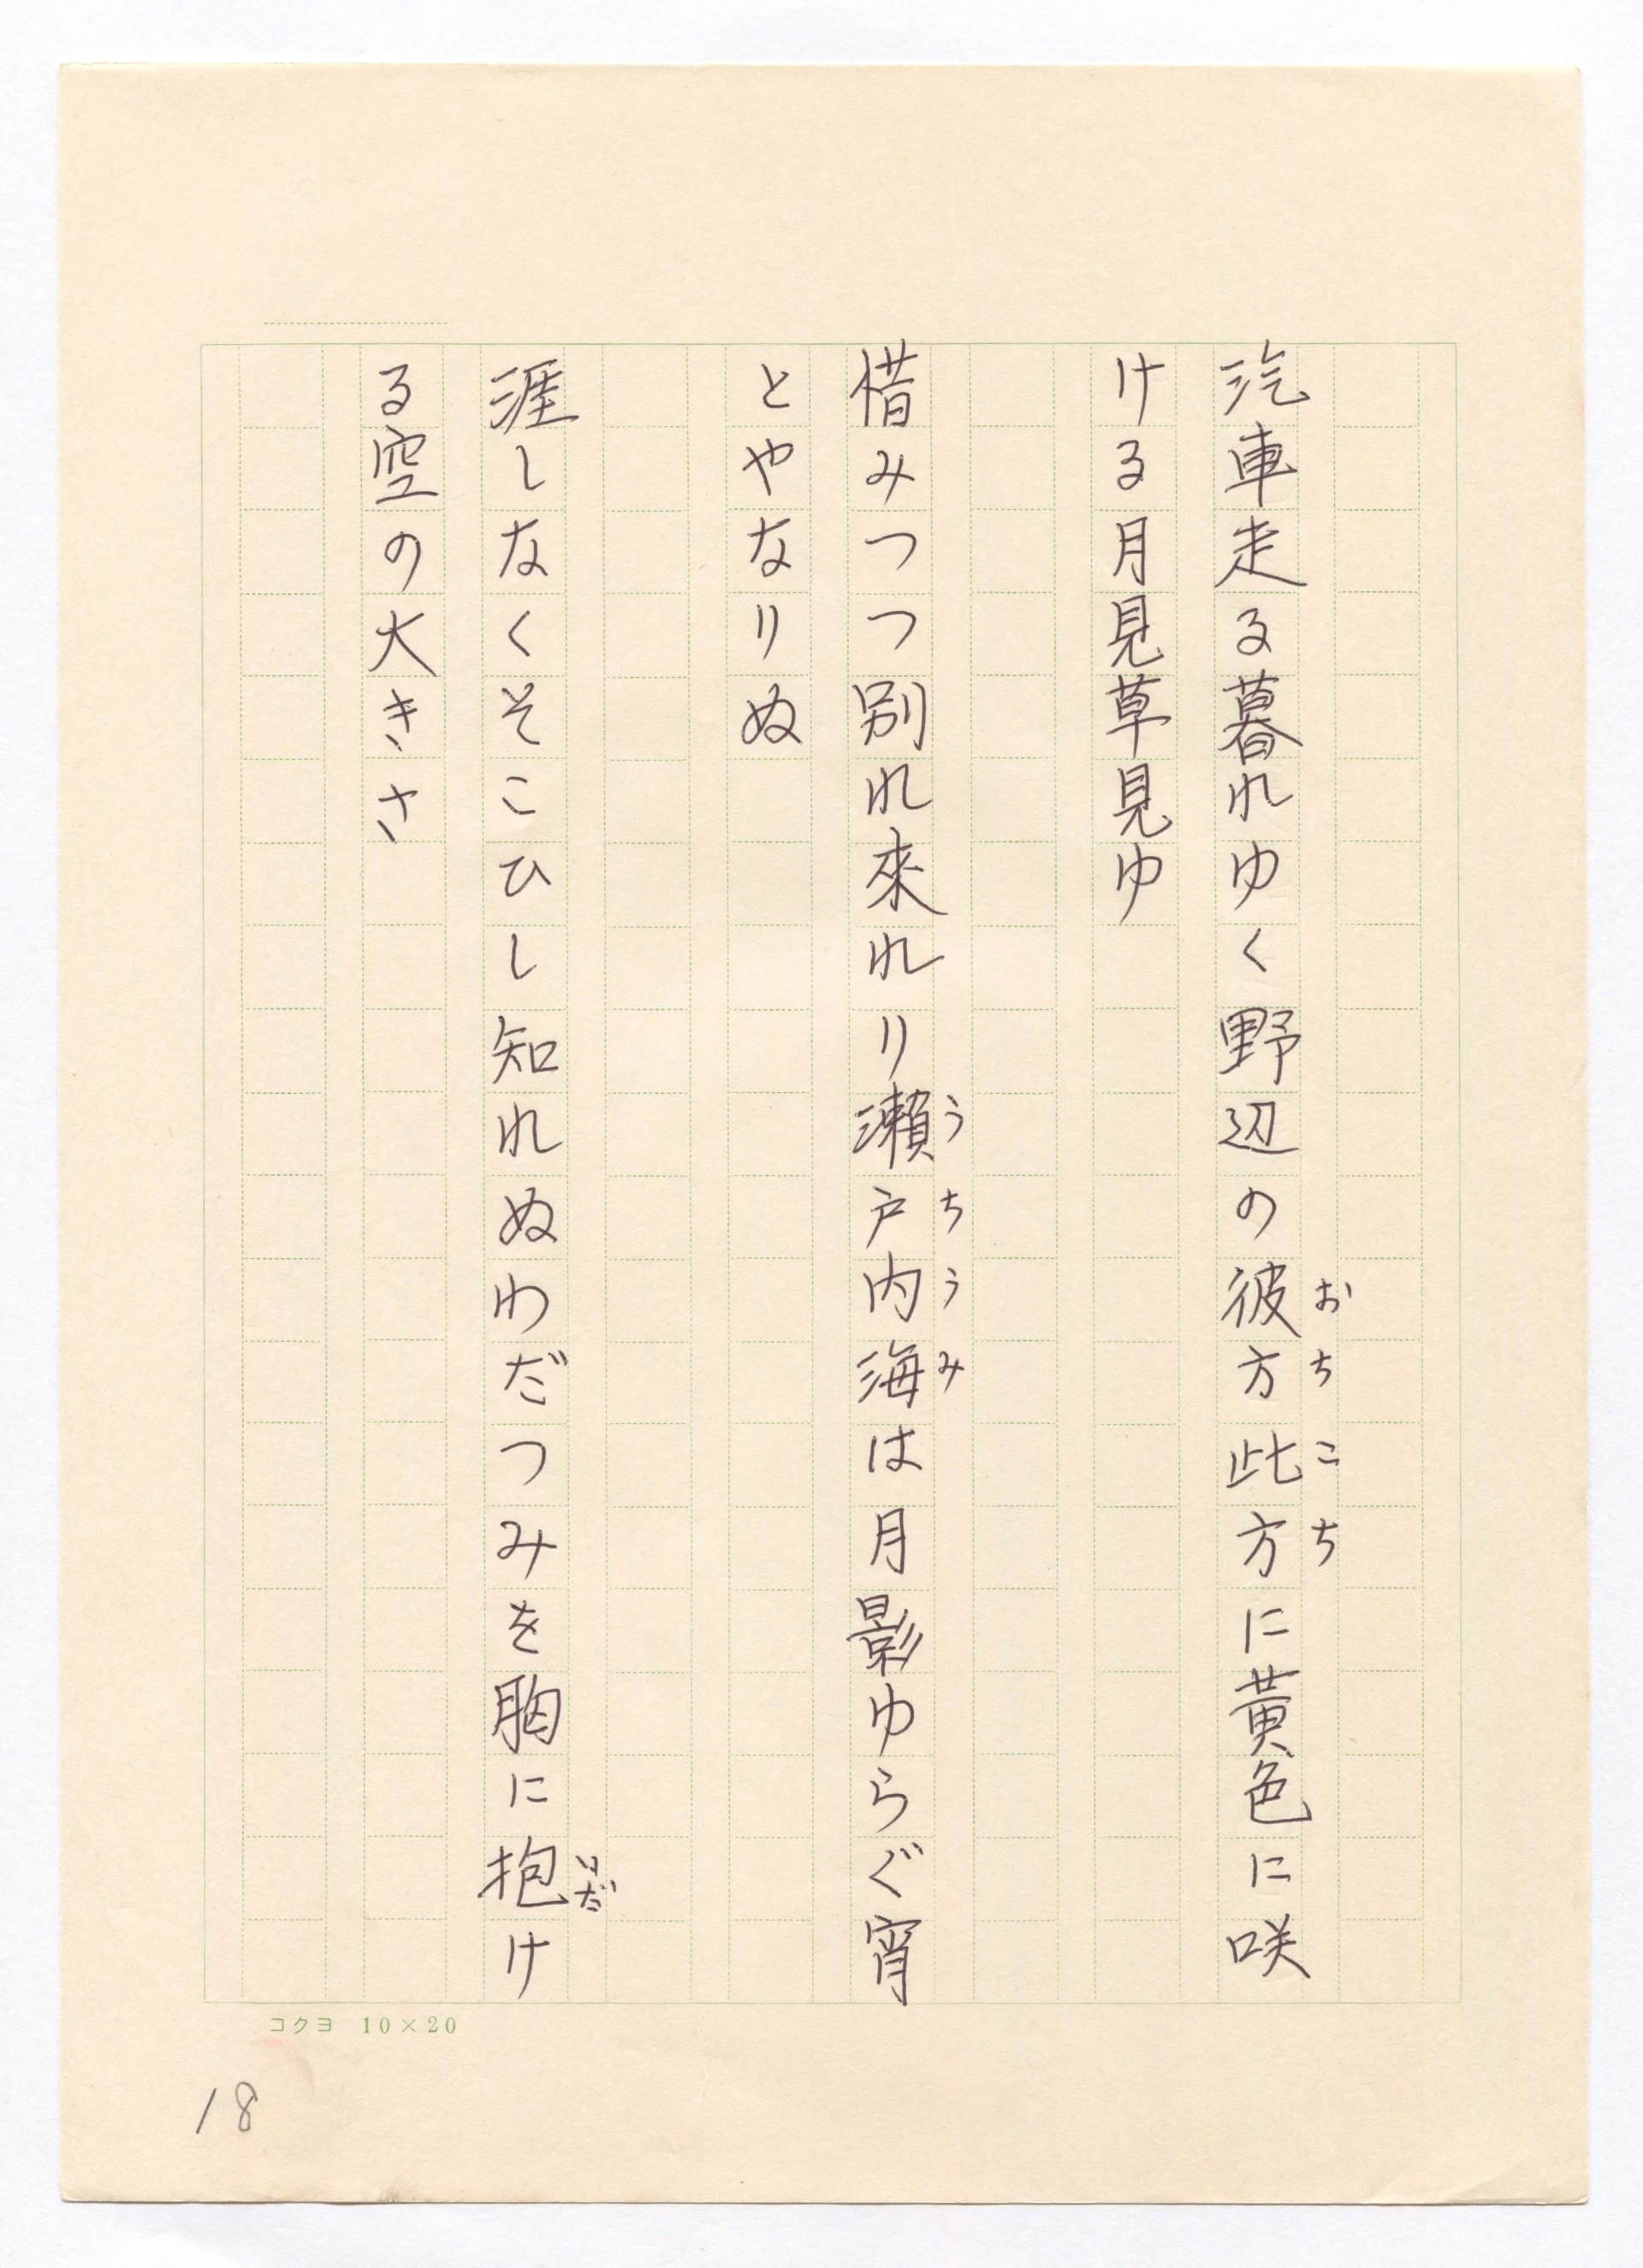 汽車走る暮れゆく野辺の彼方此方に黄色に咲
おちこち
ける月見草見ゆ
惜みつつ別れ來れり瀬戸内海は月影ゆらぐ宵
うちうみ
とやなりぬ
涯しなくそこひし知れぬわだつみを胸に抱け
いだ
る空の大きさ
コクヨ 10×20
18